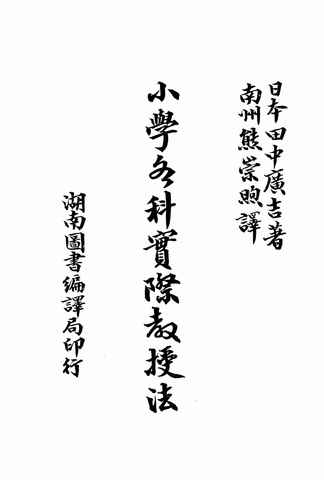 日本田中廣吉著
南州熊崇煦譯
小學各科實際教授法
湖南圖書編譯局印行